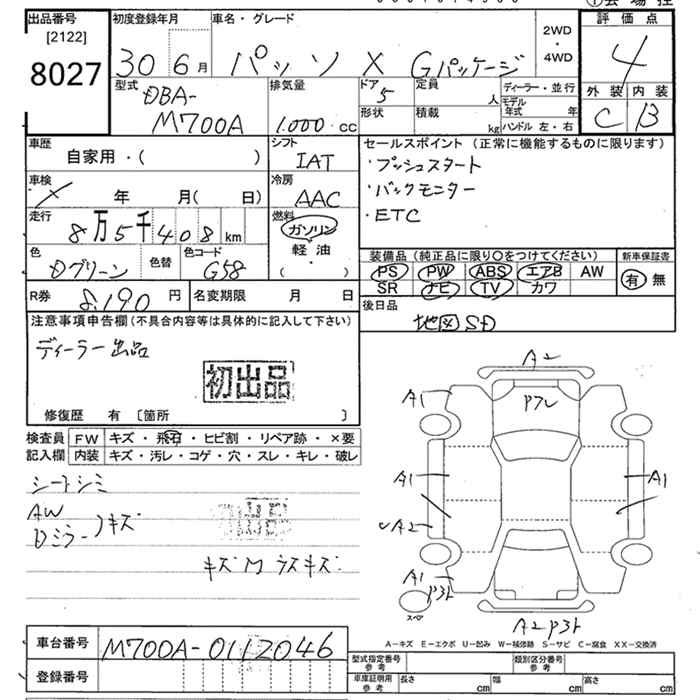 会場控
出品番号 [2122] 8027
初度登録年月 30 6月
車名・グレード パッソ X Gパッケージ
2WD・4WD
評価点 4
外装 C 内装 B
型式 DBA-M700A
排気量 1.000cc
ドア 5 形状
定員 人 積載 kg
ディーラー・並行
モデル年式 年
ハンドル 左・右
車歴 自家用・( )
シフト IAT
セールスポイント(正常に機能するものに限ります)
・プッシュスタート
・バックモニター
・ETC
車検 X 年 月( 日)
冷房 AAC
走行 8万5千408km
燃料 ガソリン・軽油・( )
色 Dグリーン 色替 色コード G58
装備品(純正品に限り〇をつけてください)
PS PW ABS エアB AW
SR ナビ TV カワ
新車保証書 有 無
R券 8,190円 名変期限 月 日
後日品 地図SD
注意事項申告欄(不具合内容等は具体的に記入して下さい)
ディーラー出品
初出品
修復歴 有 〔箇所 〕
検査員記入欄
FW キズ・飛石・ヒビ割・リペア跡・×要
内装 キズ・汚レ・コゲ・穴・スレ・キレ・破レ
シートシミ
AW
Dミラー )キズ
出品
キズM ラスキズ
A2
A1 P7L
A1 A1
A2
A1
P3ト
スペア
A2 P3ト
A-キズ E-エクボ U-凹み W-補修跡 S-サビ C-腐食 XX-交換済
車台番号 M700A-0112046
登録番号
型式指定番号参考 類別区分番号参考
車庫証明用参考 長さ cm 幅 cm 高さ cm